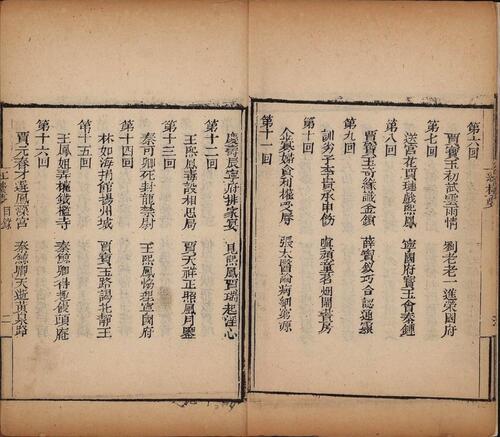 第六回
賈寶玉初試雲雨情 劉老老一進榮國府
第七回
送宮花賈璉戲熙鳳 寧國府寶玉會秦鍾
第八回
賈寶玉奇緣識金鎖 薛寶釵巧合認通靈
第九回
訓劣子李貴承申飭 嗔頑童茗烟鬧書房
第十回
金寡婦貪利權受辱 張太醫論病細窮源
第十一回
慶壽辰寧府排家宴 見熙鳳賈瑞起淫心
第十二回
王熙鳳毒設相思局 賈天祥正照風月鑒
第十三回
秦可卿死封龍禁尉 王熙鳳協理寧國府
第十四回
林如海捐館揚州城 賈寶玉路謁北靜王
第十五回
王鳳姐弄權鐵檻寺 秦鯨卿得趣饅頭庵
第十六回
賈元春才選鳳藻宮 秦鯨卿夭逝黃泉路
紅樓夢 目錄 二